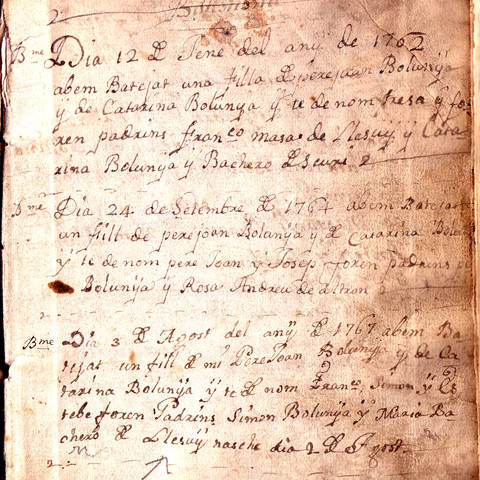 Bme Dia 12 de Jene del anÿ de 1762
abem Batejat una filla de perejoan Bolunÿa
y de Catarina Bolunÿa ÿ te de nom tresa ÿ fo
ren padrins franco masa de Llesuÿ ÿ Cata
rina Bolunÿa y Bachero
Bme Dia 24 de Setembre de 1764 abem Batejat
un fiill de perejoan Bolunÿa y de Catarina Bolu
ÿ te de nom pere Joan ÿ Josep foren padrins
Bolunÿa y Rosa Andreu de altron
Bme Dia 3 de Agost del anÿ de 1767 abem Ba
tejat un fill de mi PereJoan Bolunÿa ÿ de Ca
tarina Bolunÿa ÿ te de nom Franco Simon ÿ Es
tebe foren Padrins Simon Bolunÿa ÿ Maria Ba
chero de Llesuÿ nasche dia 2 de Agost